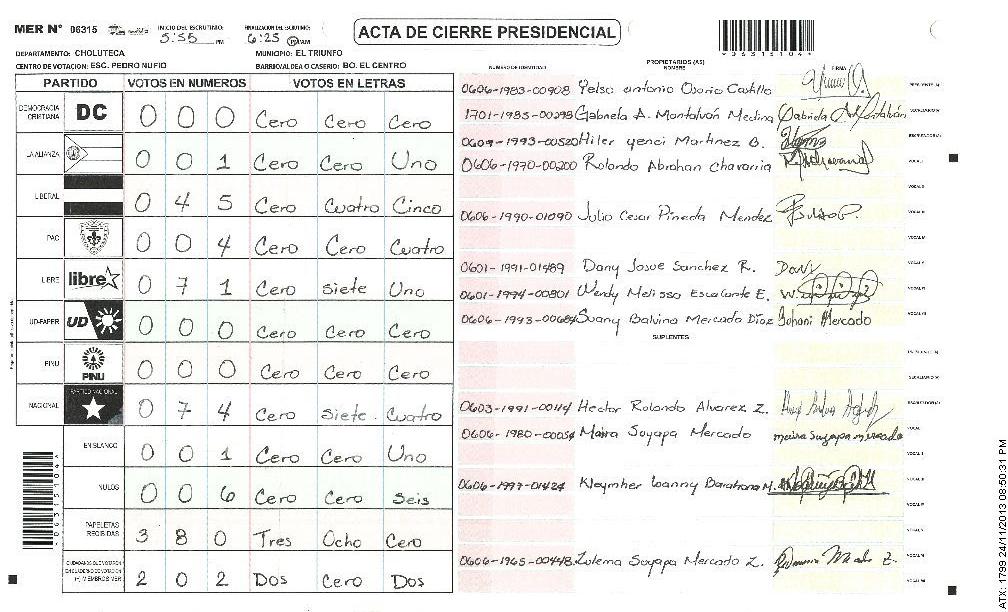 MER Nº 06315
INICIO DEL ESCRUTINIO: 5:55 PM
FINALIZACION DEL ESCRUTINIO: 6:25 PM
ACTA DE CIERRE PRESIDENCIAL
*06315104*
DEPARTAMENTO: CHOLUTECA MUNICIPIO: EL TRIUNFO
CENTRO DE VOTACION: ESC. PEDRO NUFIO BARRIO/ALDEA O CASERIO: BO. EL CENTRO
PARTIDO VOTOS EN NUMEROS VOTOS EN LETRAS
DEMOCRACIA CRISTIANA DC 0 0 0 Cero Cero Cero
LA ALIANZA 0 0 1 Cero Cero Uno
LIBERAL 0 4 5 Cero Cuatro Cinco
PAC 0 0 4 Cero Cero Cuatro
LIBRE libre 0 7 1 Cero Siete Uno
UD-FAPER UD 0 0 0 Cero Cero Cero
PINU PINU 0 0 0 Cero Cero Cero
NACIONAL PARTIDO NACIONAL 0 7 4 Cero Siete Cuatro
EN BLANCO 0 0 1 Cero Cero Uno
NULOS 0 0 6 Cero Cero Seis
PAPELETAS RECIBIDAS 3 8 0 Tres Ocho Cero
(+) MIEMBROS MER 2 0 2 Dos Cero Dos
*06315104*
NUMERO DE IDENTIDAD PROPIETARIOS (AS) NOMBRE FIRMA
0606-1983-00908 Pelso antonio Osorio Castillo PRESIDENTE (A)
1701-1985-00298 Gabriela A. Montalván Medina Gabriela A. Montalván SECRETARIO (A)
0609-1993-00520 Hiler yenci Martinez B. ESCRUTADOR (A)
0606-1970-00200 Rolando Abrahan Chavarria VOCAL I
VOCAL II
0606-1990-01090 Julio Cesar Pineda Mendez VOCAL III
VOCAL IV
0601-1991-01489 Dany Josue Sanchez R. Dany VOCAL V
0601-1994-00801 Wendy Melissa Escalante E. VOCAL VI
0606-1993-00684 Suany Balvina Mercado Díaz Johani Mercado VOCAL VII
SUPLENTES
PRESIDENTE (A)
SECRETARIO (A)
0603-1991-00114 Hector Rolando Alvarez Z. ESCRUTADOR (A)
0606-1980-00054 Maira Suyapa Mercado maira Suyapa mercado VOCAL I
VOCAL II
0606-1997-01424 Kleymher Ioanny Barahona M. VOCAL III
VOCAL IV
VOCAL V
0606-1965-00448 Zulema Suyapa Mercado Z. VOCAL VI
VOCAL VII
ATX: 1799 24/11/2013 08:50:31 PM